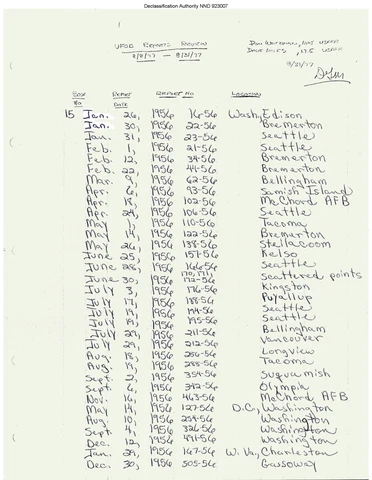 Declassification Authority NND 923007
1
UFOB REPORTS REVIEW
8/8/77 — 8/21/77
8/21/77
BOX REPORT REPORT NO LOCATION
No DATE
15 Jan. 26, 1956 16-56 Wash, Edison
Jan. 30, 1956 22-56 Bremerton
Jan. 31, 1956 23-56 Seattle
Feb. 1, 1956 21-56 Seattle
Feb. 12, 1956 34-56 Bremerton
Feb. 22, 1956 44-56 Bremerton
Mar. 9, 1956 62-56 Bellingham
Apr. 6, 1956 93-56 Samish Island
Apr. 18, 1956 102-56 McChord AFB
Apr. 24, 1956 106-56 Seattle
May 1, 1956 110-56 Tacoma
May 14, 1956 122-56 Bremerton
May 26, 1956 138-56 Steilacoom
June 25, 1956 157-56 Kelso
June 28, 1956 166-56 Seattle
170, 171,
June 30, 1956 172-56 Scattered points
July 3, 1956 176-56 Kingston
July 17, 1956 188-56 Puyallup
July 19, 1956 194-56 Seattle
July 19, 1956 195-56 Seattle
July 29, 1956 211-56 Bellingham
July 29, 1956 212-56 Vancouver
Aug. 18, 1956 256-56 Longview
Aug. 19, 1956 288-56 Tacoma
Sept. 2, 1956 354-56 Suquamish
Sept. 6, 1956 342-56 Olympia
Nov. 16, 1956 463-56 McChord AFB
May 14, 1956 127-56 D.C., Washington
Aug. 10, 1956 254-56 Washington
Sept. 4, 1956 326-56 Washington
Dec. 12, 1956 491-56 Washington
Jan. 29, 1956 167-56 W. Va., Charleston
Dec. 30, 1956 505-56 Gassoway